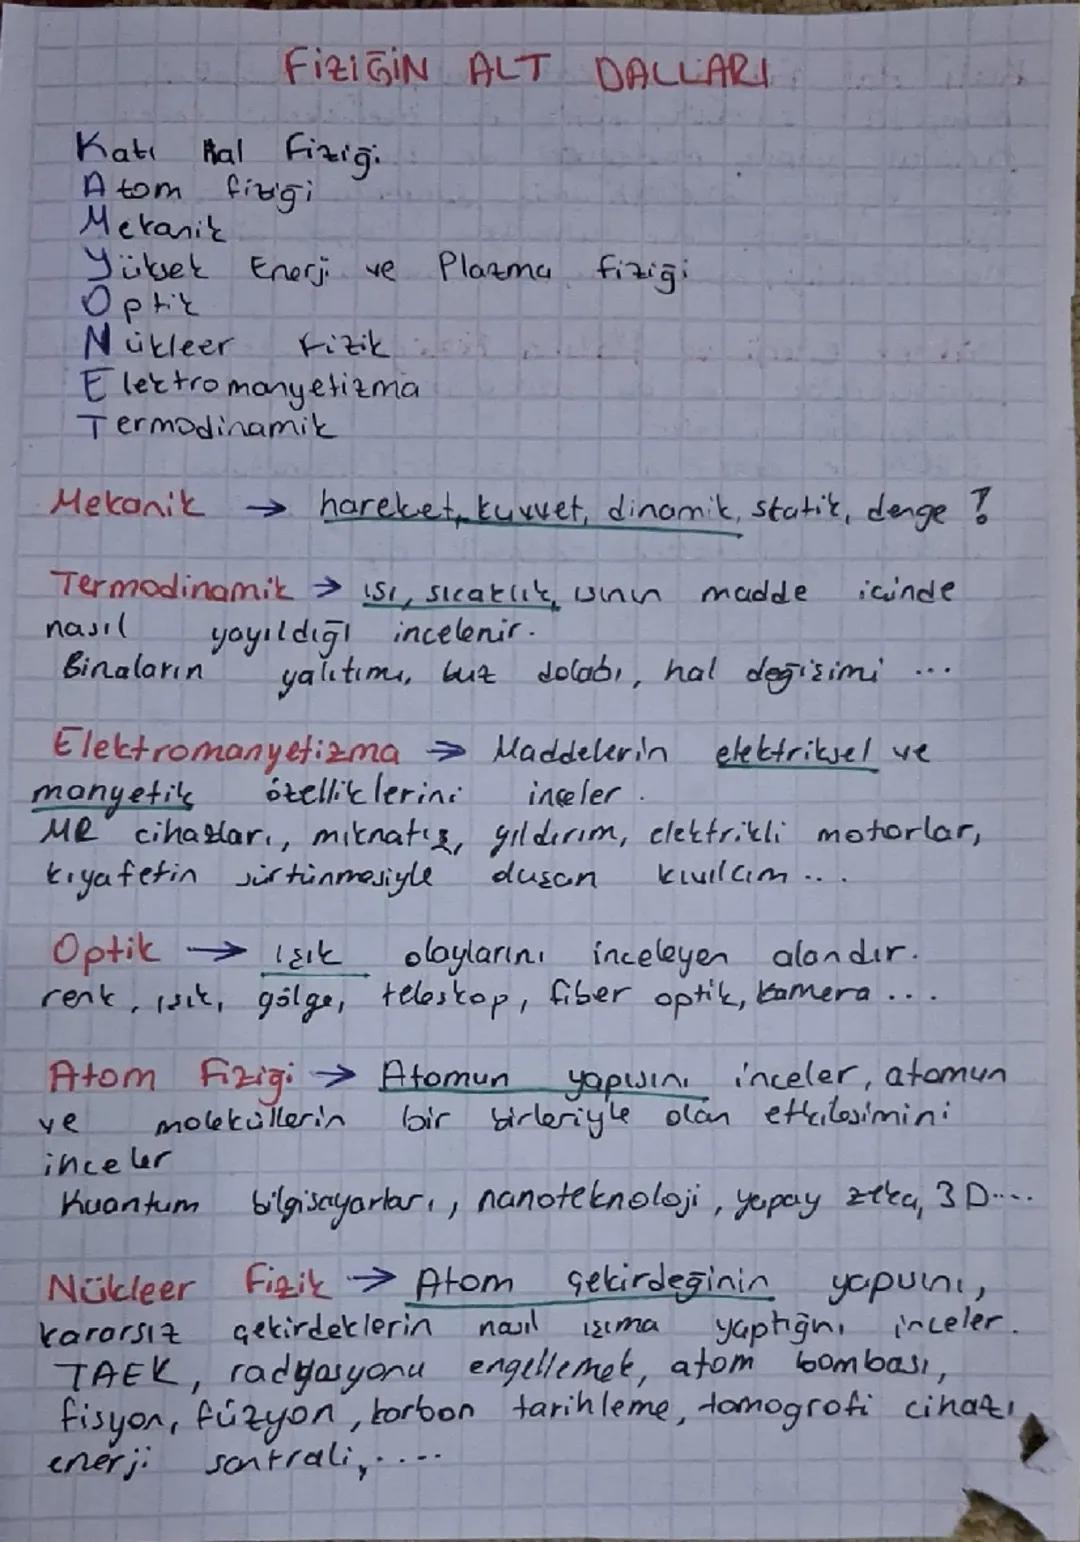 FİZİĞİN ALT DALLARI
Katı Hal Fiziği
Atom fiziği
Mekanik
Yüksek Enerji ve Plazma fiziği
Optik
Nükleer Fizik
Elektromanyetizma
Termodinamik
Mekanik → hareket, kuvvet, dinamik, statik, denge ?
Termodinamik → ısı, sıcaklık, ısının madde içinde
nasıl yayıldığı incelenir.
Binaların yalıtımı, buz dolabı, hal değişimi ...
Elektromanyetizma → Maddelerin elektriksel ve
manyetik özelliklerini inceler.
MR cihazları, mıknatıs, yıldırım, elektrikli motorlar,
kıyafetin sürtünmesiyle duşan kıvılcım ...
Optik → ışık olaylarını inceleyen alandır.
renk, ışık, gölge, teleskop, fiber optik, kamera ...
Atom Fiziği → Atomun yapısını inceler, atomun
ve moleküllerin bir birleriyle olan etkileşimini
inceler
Kuantum bilgisayarları, nanoteknoloji, yapay zeka, 3D....
Nükleer Fizik → Atom çekirdeğinin yapısını,
kararsız çekirdeklerin nasıl ışıma yaptığını inceler.
TAEK, radyasyonu engellemek, atom bombası,
fisyon, füzyon, karbon tarihleme, tomografi cihazı
enerji santrali,....